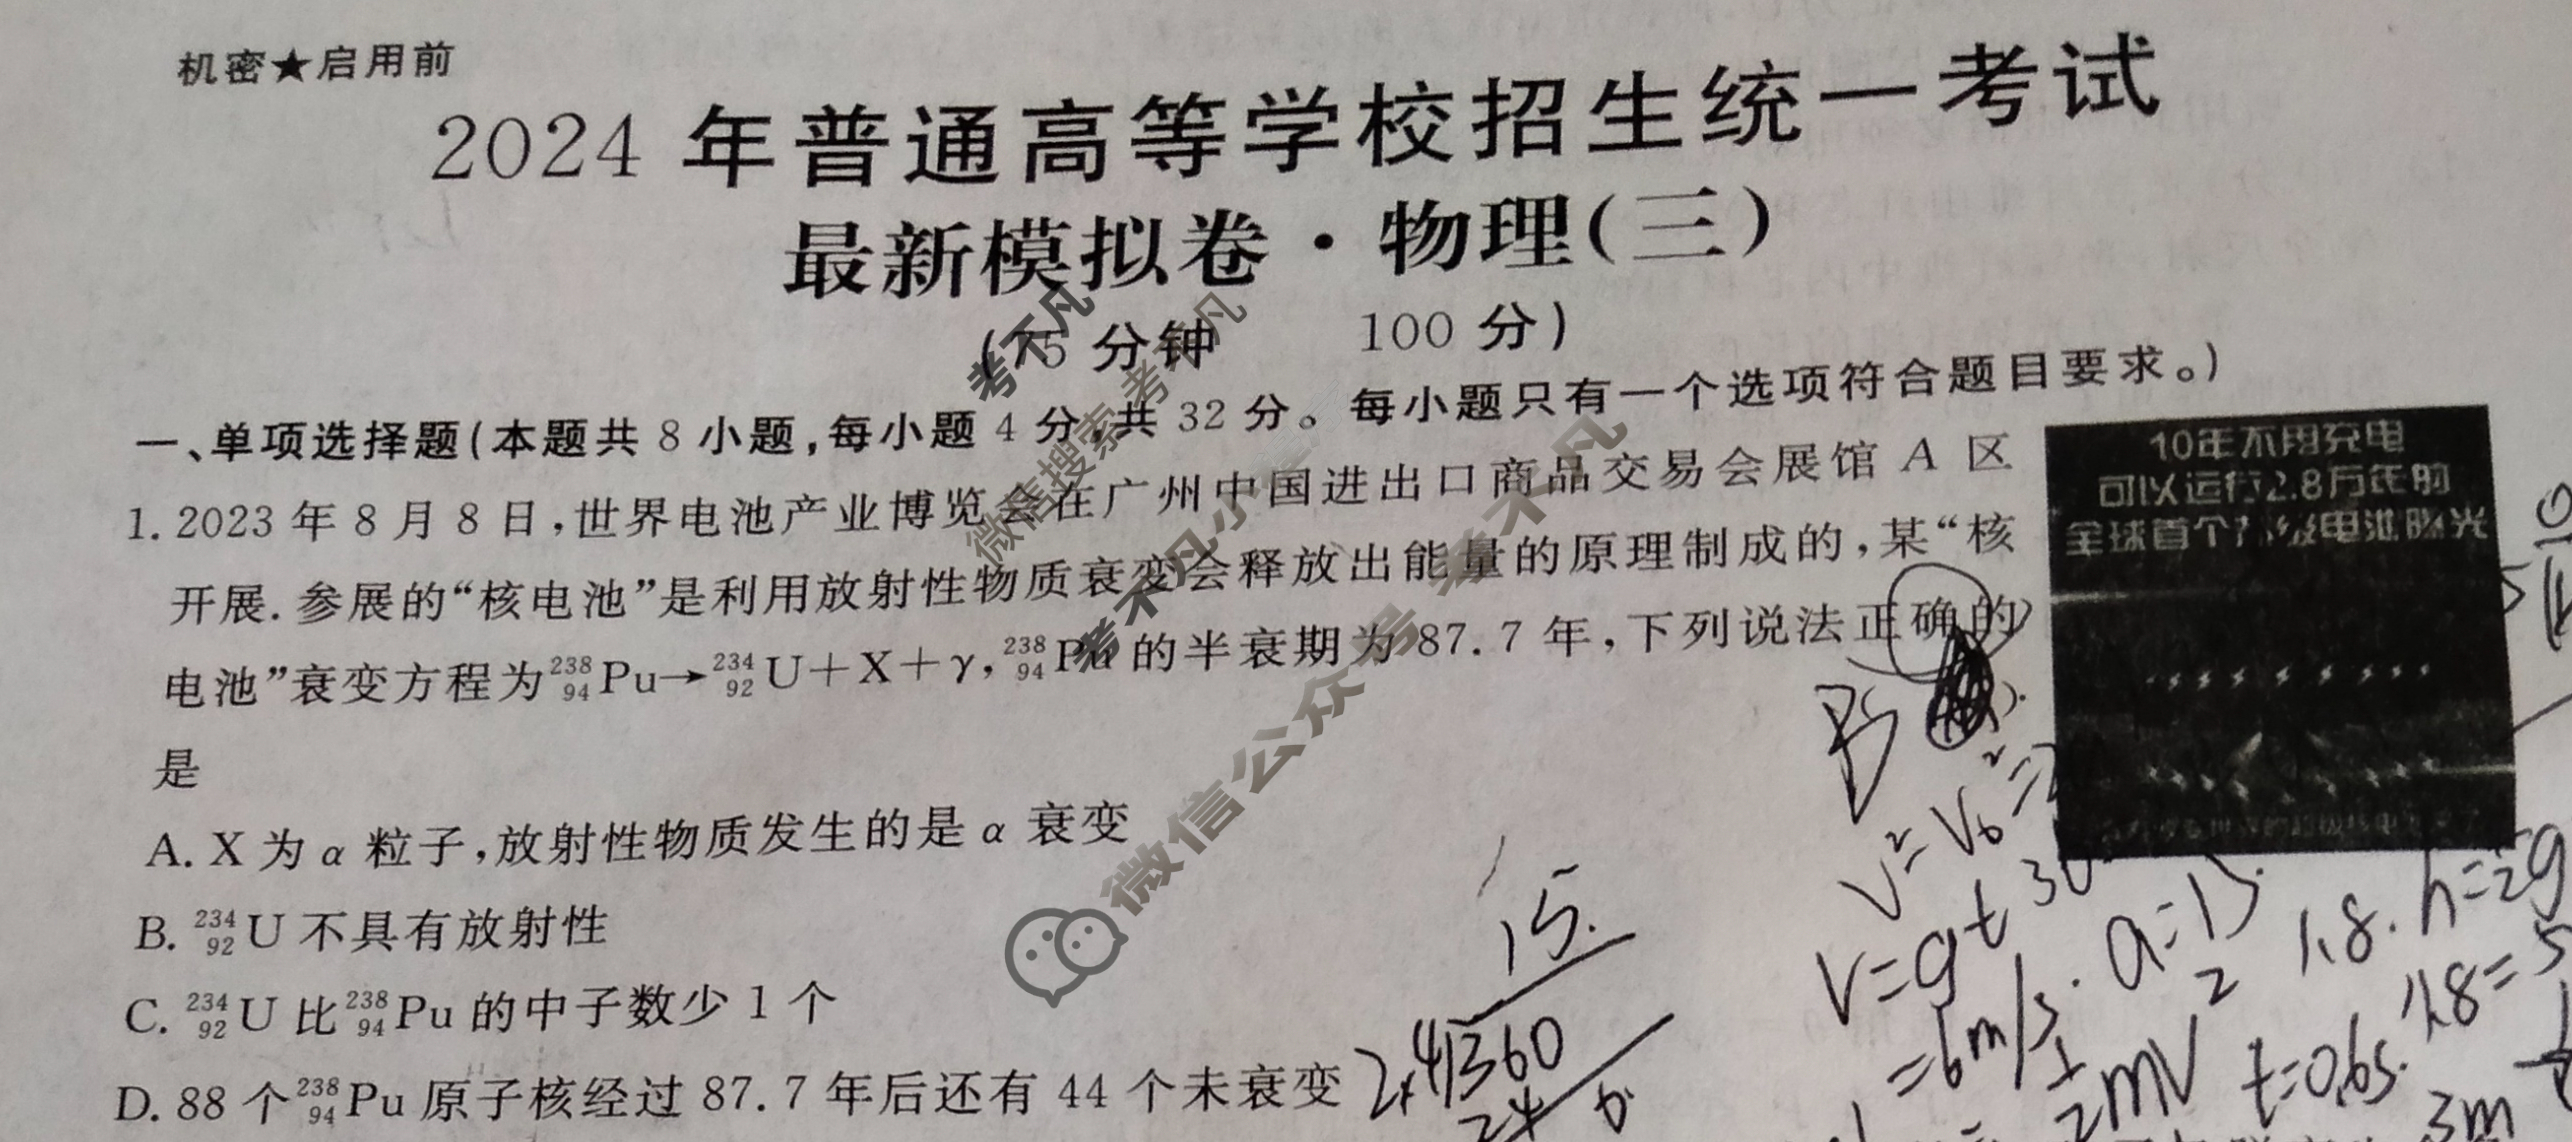 机密★启用前
2024 年普通高等学校招生统一考试
最新模拟卷·物理(三)
(75 分钟 100 分)
一、单项选择题(本题共 8 小题,每小题 4 分,共 32 分。每小题只有一个选项符合题目要求。)
1. 2023 年 8 月 8 日,世界电池产业博览会在广州中国进出口商品交易会展馆 A 区
开展. 参展的“核电池”是利用放射性物质衰变会释放出能量的原理制成的,某“核
电池”衰变方程为²³⁸₉₄Pu→²³⁴₉₂U+X+γ,²³⁸₉₄Pu 的半衰期为 87.7 年,下列说法正确的
是
A. X 为 α 粒子,放射性物质发生的是 α 衰变
B. ²³⁴₉₂U 不具有放射性
C. ²³⁴₉₂U 比²³⁸₉₄Pu 的中子数少 1 个
D. 88 个²³⁸₉₄Pu 原子核经过 87.7 年后还有 44 个未衰变
10年不用充电
可以运行2.8万年的
全球首个 级电池曝光
考不凡
微信搜索考不凡
考不凡小
微信公众号 考不凡
15.
360
V=gt
=6m/s.
1.8.
t=0.6s.
3m